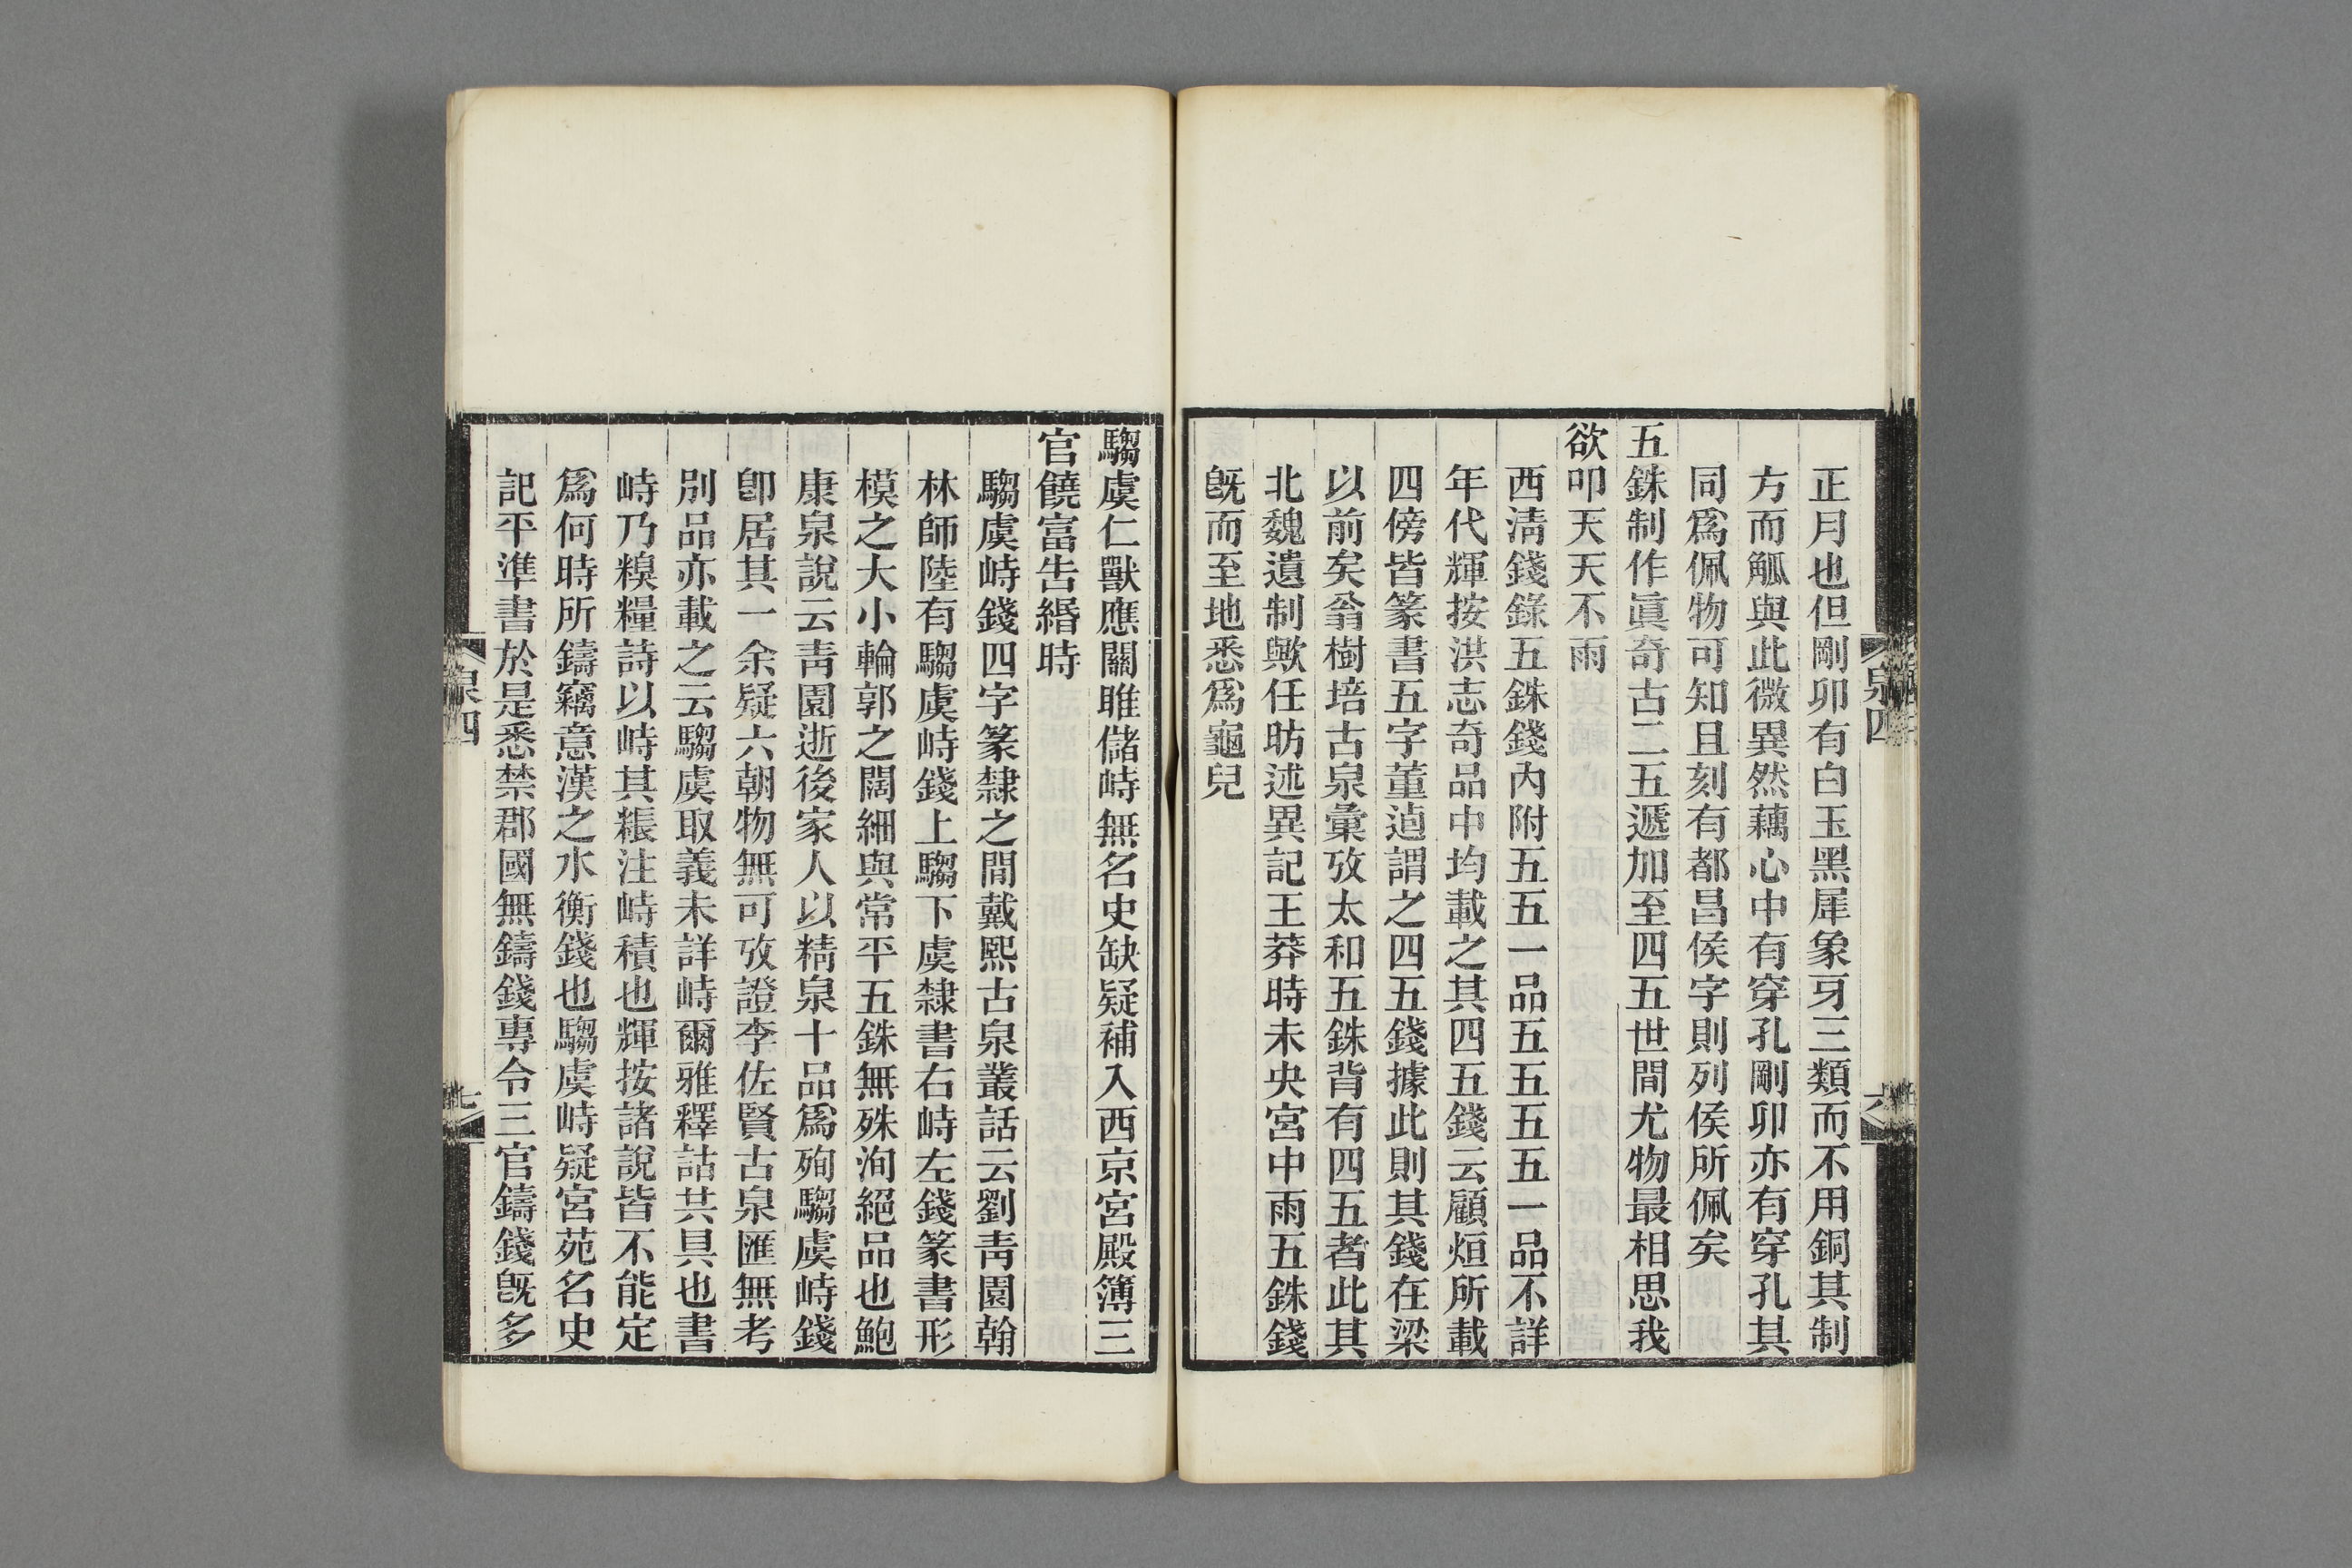 正月也但剛卯有白玉黑犀象牙三類而不用銅其制
方而觚與此微異然藕心中有穿孔剛卯亦有穿孔其
同爲佩物可知且刻有都昌侯字則列侯所佩矣
五銖制作眞奇古二五遞加至四五世間尤物最相思我
欲叩天天不雨
西淸錢錄五銖錢內附五五一品五五五五一品不詳
年代輝按洪志奇品中均載之其四五錢云顧烜所載
四傍皆篆書五字董逌謂之四五錢據此則其錢在梁
以前矣翁樹培古泉彙攷太和五銖背有四五者此其
北魏遺制歟任昉述異記王莽時未央宮中雨五銖錢
旣而至地悉爲龜兒
泉四
六
騶虞仁獸應關雎儲峙無名史缺疑補入西京宮殿簿三
官饒富吿緡時
騶虞峙錢四字篆隸之間戴熙古泉叢話云劉靑園翰
林師陸有騶虞峙錢上騶下虞隸書右峙左錢篆書形
模之大小輪郭之闊細與常平五銖無殊洵絕品也鮑
康泉說云靑園逝後家人以精泉十品爲殉騶虞峙錢
卽居其一余疑六朝物無可攷證李佐賢古泉匯無考
別品亦載之云騶虞取義未詳峙爾雅釋詁共具也書
峙乃糗糧詩以峙其粻注峙積也輝按諸說皆不能定
爲何時所鑄竊意漢之水衡錢也騶虞峙疑宮苑名史
記平準書於是悉禁郡國無鑄錢專令三官鑄錢旣多
泉四
七